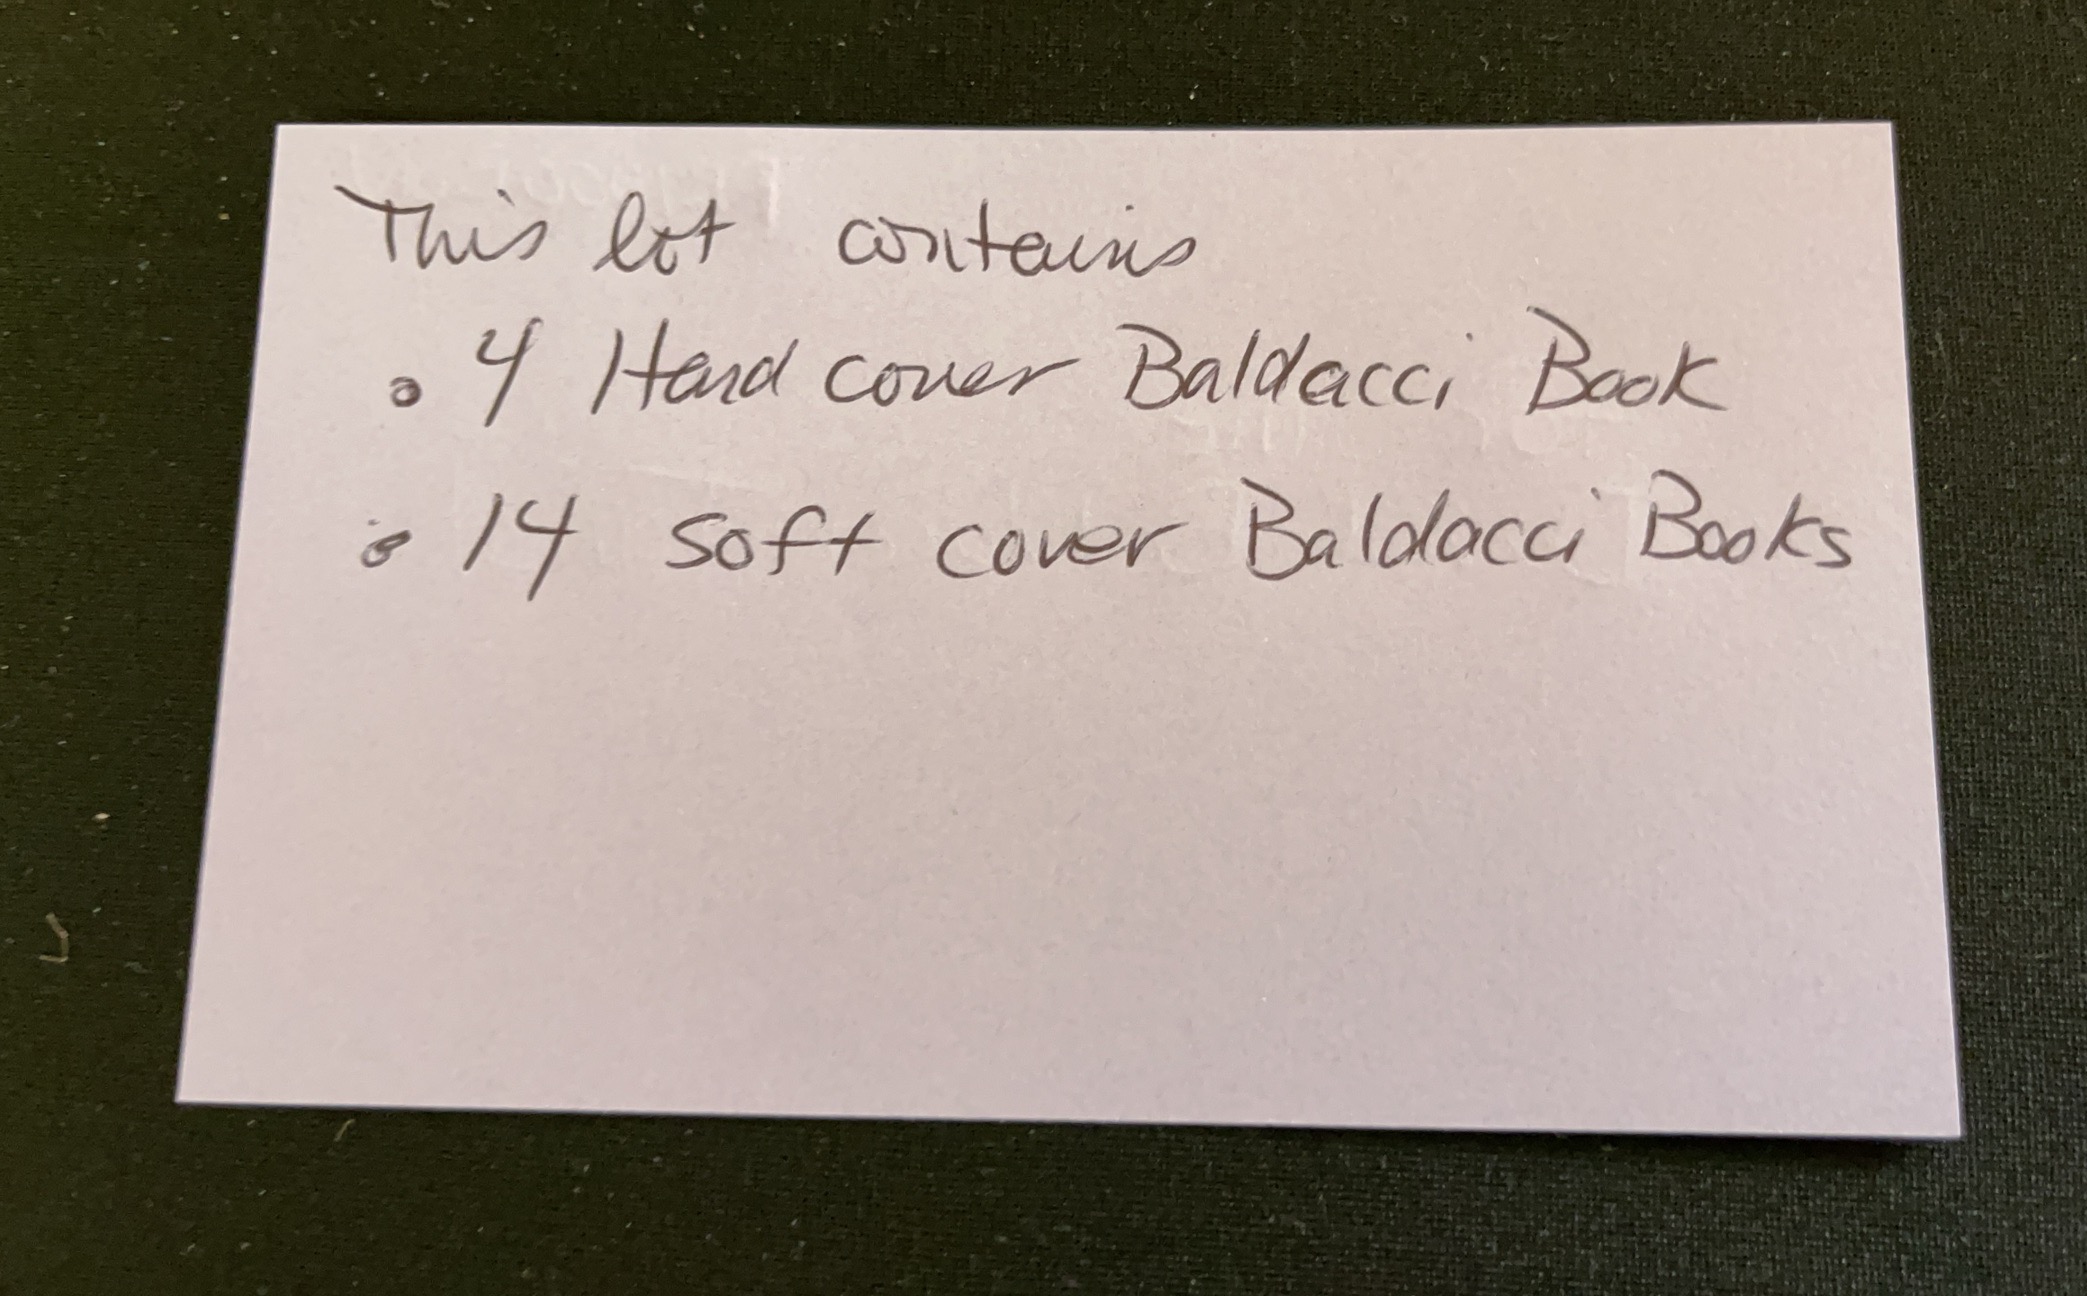 This lot contains
• 4 Hard cover Baldacci Book
• 14 soft cover Baldacci Books